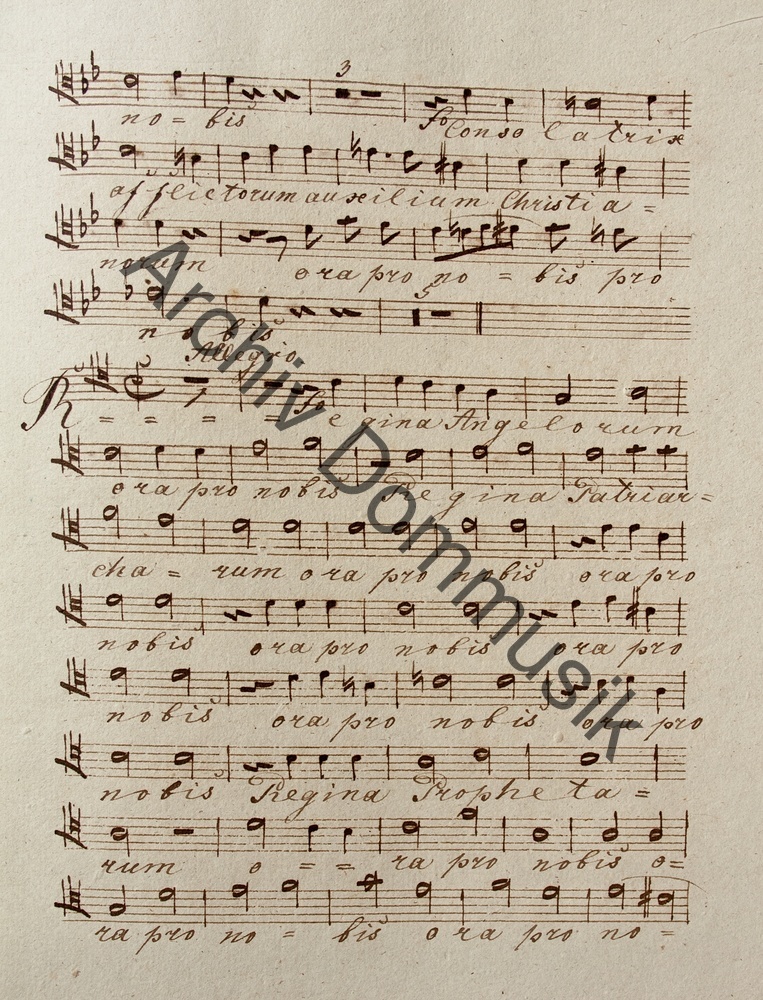 3
no = bis fo Conso latrix
afflictorum auxilium Christi a =
norum ora pro no = bis pro
5
no bis
Allegro
R = = = = fo egina Angelorum
ora pro nobis Regina Patriar=
cha = rum ora pro nobis ora pro
nobis ora pro nobis ora pro
nobis ora pro nobis ora pro
nobis Regina Propheta =
rum o = = ra pro nobis o=
ra pro no = bis ora pro no =
Archiv Dommusik